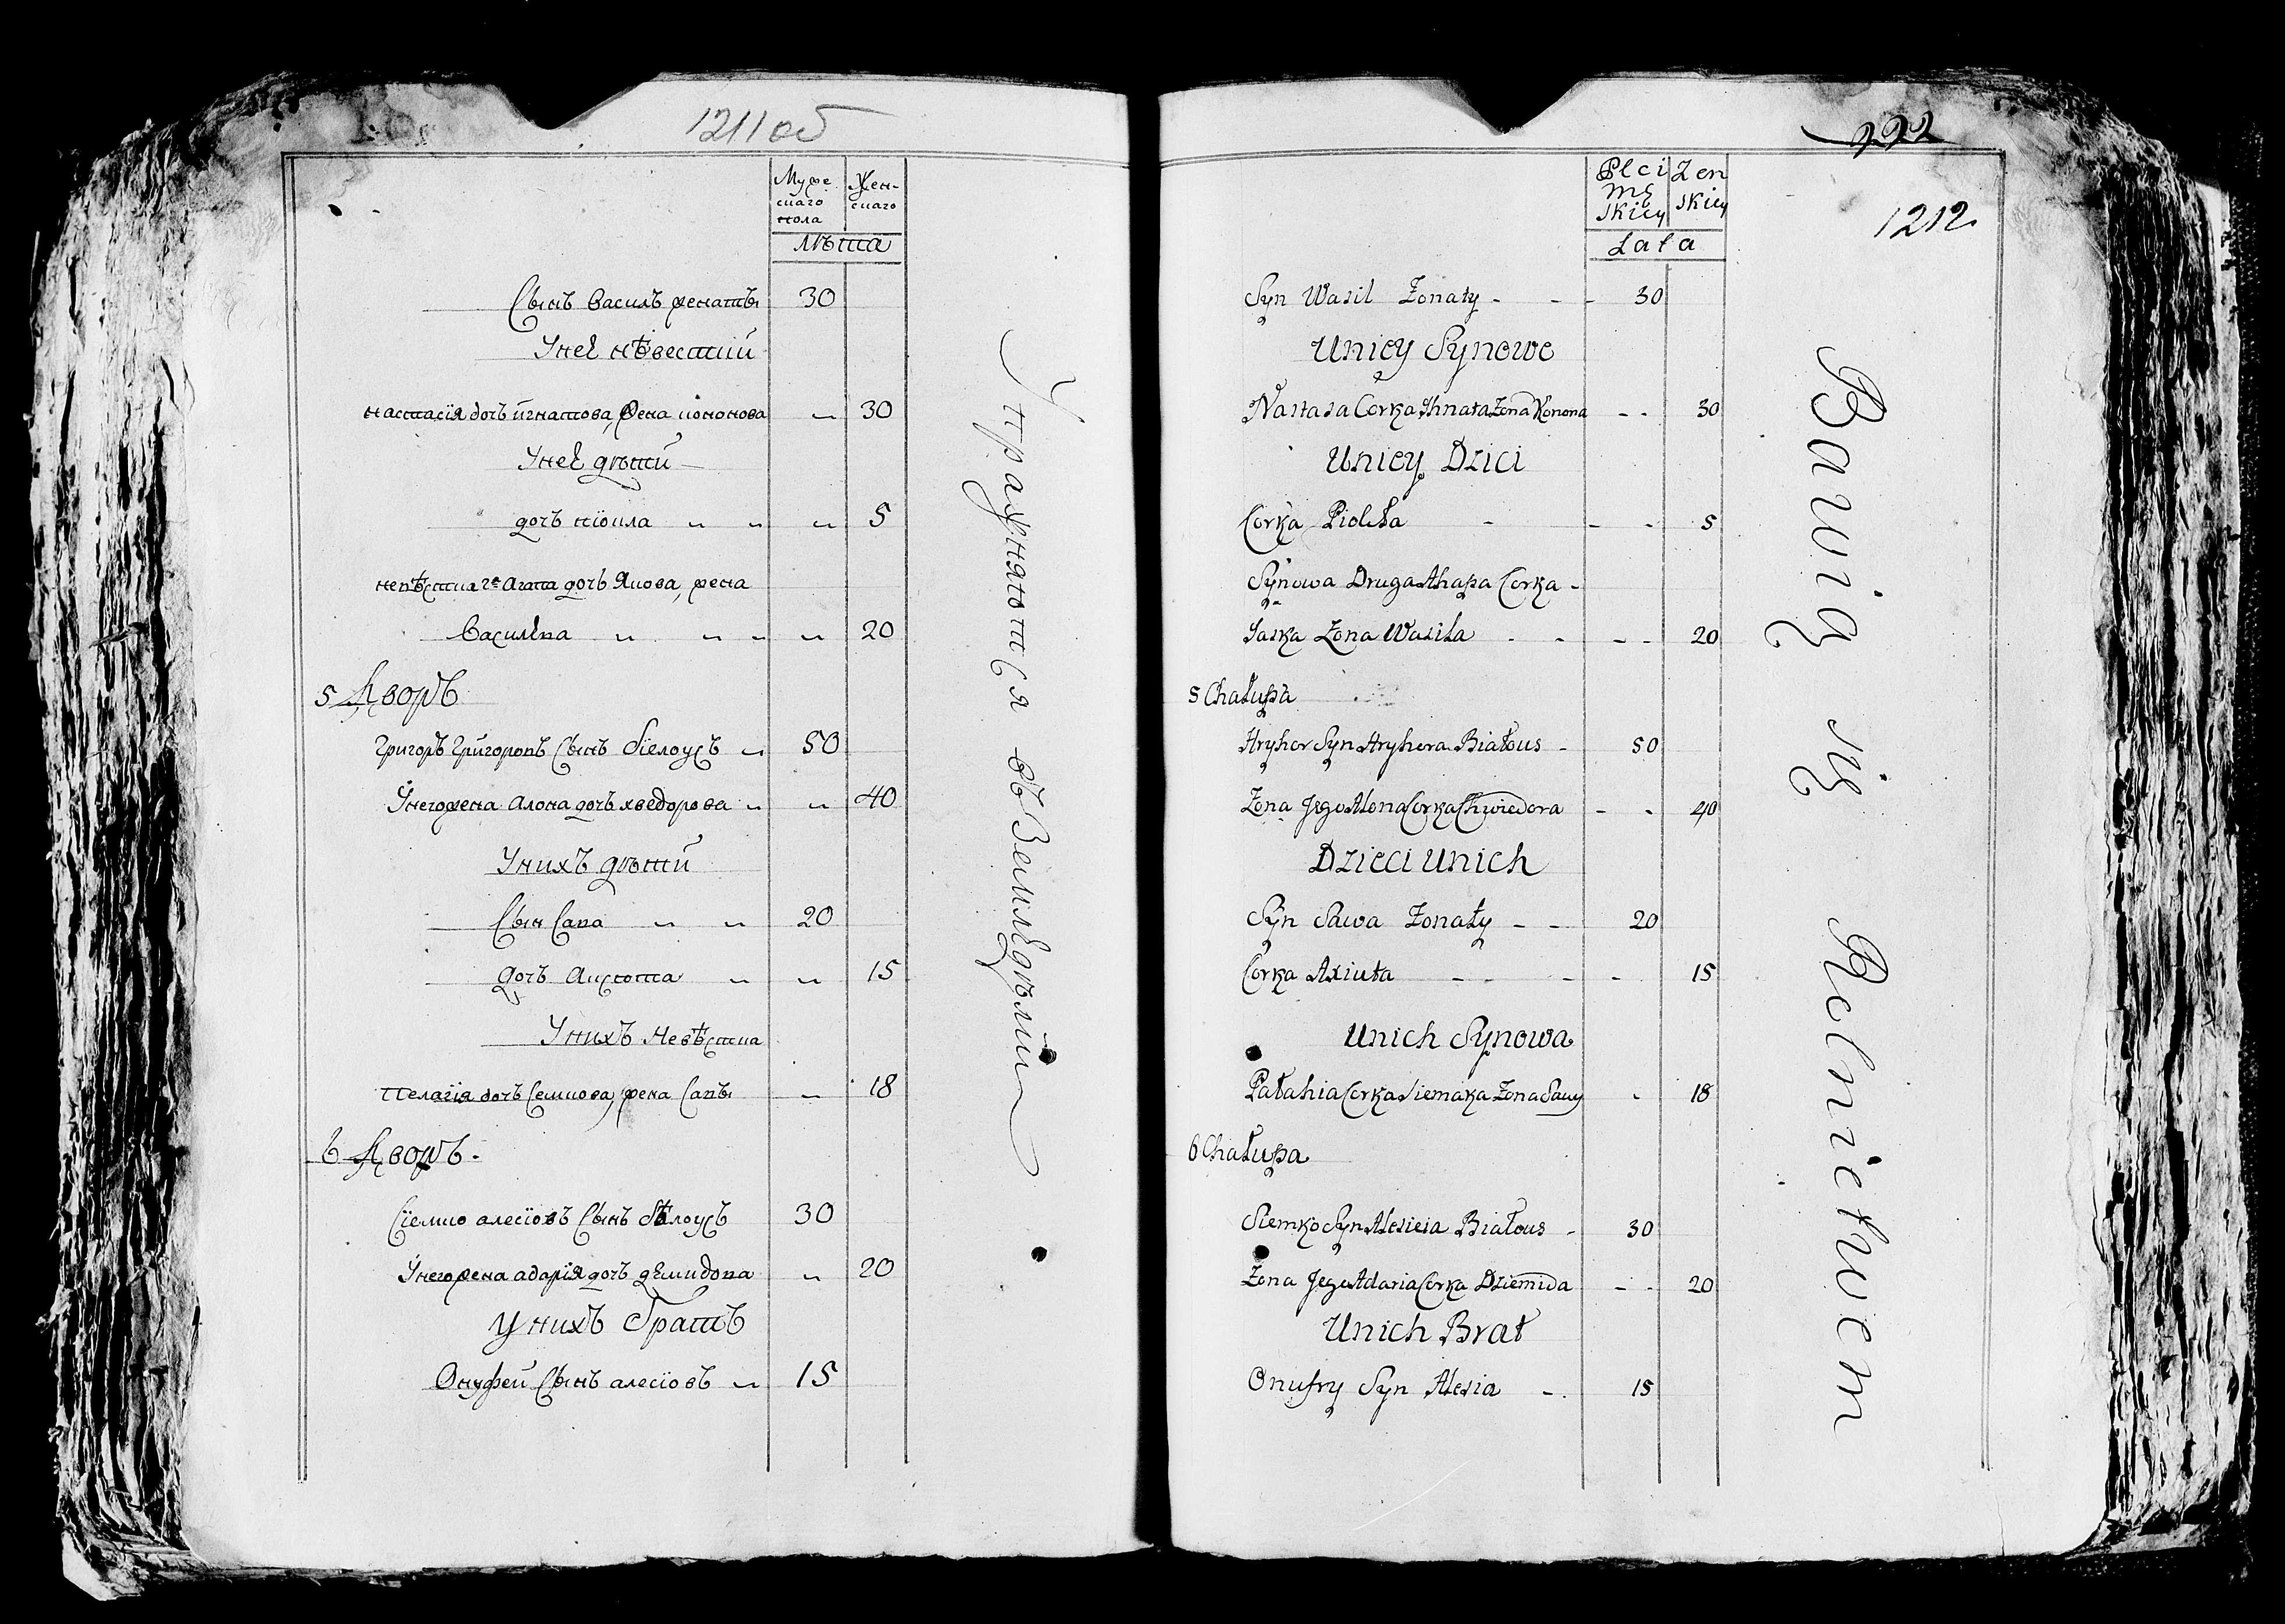 1211 об
Мужескаго пола
Женскаго
лѣта
Сынъ Василъ женатъı 30
Унеѣ нѣвестки
настасїя дочъ игнатова, жена кононова 30
Унеѣ дѣти
дочъ пїокла 5
невѣстка 2я Агапа дочъ Яцкова, жена
Василѣва 20
5 Дворъ
Григоръ Григоровъ Сынъ бїелоусъ 50
Унего жена алона дочъ хведорова 40
Унихъ дѣти
Сын Сава 20
дочъ Аксюта 15
Унихъ Невѣстка
Пелагїя дочъ Семкова, жена Савъı 18
6 Дворъ.
Сїемко алесїовъ Сынъ бѣлоусъ 30
Унего жена адарїя дочъ дѣмидова 20
Унихъ братъ
Онуфей Сынъ алесїовъ 15
Упражняютися въ Землѣдѣлии
222
1212
Plci Męskiey
Zenskiey
Lata
Syn Wasil Żonaty - - - 30
Uniey Synowe
Nastasa Corka Ihnata Żona Konona - - 30
Uniey Dzici
Corka Piokła - - - 5
Synowa Druga Ahapa Corka -
Jaska Żona Wasila - - - - 20
5 Chałupa
Hryhor Syn Hryhora Białous - 50
Żona Jego Alona Corka Chwiedora - - 40
Dzieci Unich
Syn Sawa Żonaty - - 20
Corka Axiuta - - - - 15
Unich Synowa
Pałahia Corka Siemaka Żona Sawy - 18
6 Chałupa
Siemko Syn Alesieia Białous - 30
Żona Jego Adaria Corka Dziemida - - 20
Unich Brat
Onufry Syn Alesia - 15
Bawią się Rolnictwem